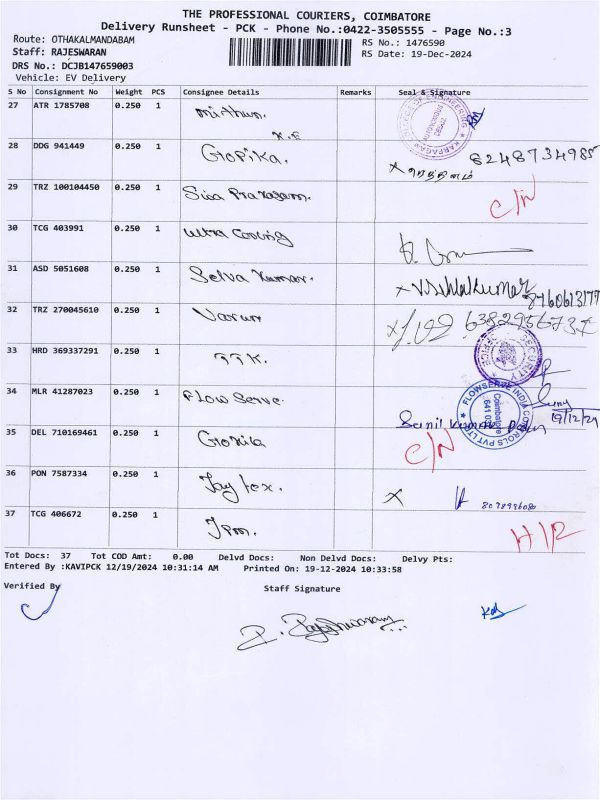 THE PROFESSIONAL COURIERS, COIMBATORE
Delivery Runsheet - PCK - Phone No.:0422-3505555 - Page No.:3
Route: OTHAKALMANDABAM
RS No.: 1476590
Staff: RAJESWARAN
RS Date: 19-Dec-2024
DRS No.: DCJB147659003
Vehicle: EV Delivery
S No Consignment No Weight PCS Consignee Details Remarks Seal & Signature
27 ATR 1785708 0.250 1 Mithun.
K.E
28 DDG 941449 0.250 1 Gopika. 8248734985
29 TRZ 100104450 0.250 1 Siva Prakasam. C/N
30 TCG 403991 0.250 1 Ultra Cooling
31 ASD 5051608 0.250 1 Selva Kumar. V.Selvakumar 8760613177
32 TRZ 270045610 0.250 1 Varun 6382956737
33 HRD 369337291 0.250 1 TTK. SECURITY OFFICE
34 MLR 41287023 0.250 1 Flow Serve. FLOWSERVE INDIA CONTROLS PVT LTD Coimbatore 641 0
Sunil Kumar 19/12/24
35 DEL 710169461 0.250 1 Gopika C/N
36 PON 7587334 0.250 1 Jay tex.
37 TCG 406672 0.250 1 Jpm.
Tot Docs: 37 Tot COD Amt: 0.00 Delvd Docs: Non Delvd Docs: Delvy Pts:
Entered By :KAVIPCK 12/19/2024 10:31:14 AM Printed On: 19-12-2024 10:33:58
Verified By
Staff Signature